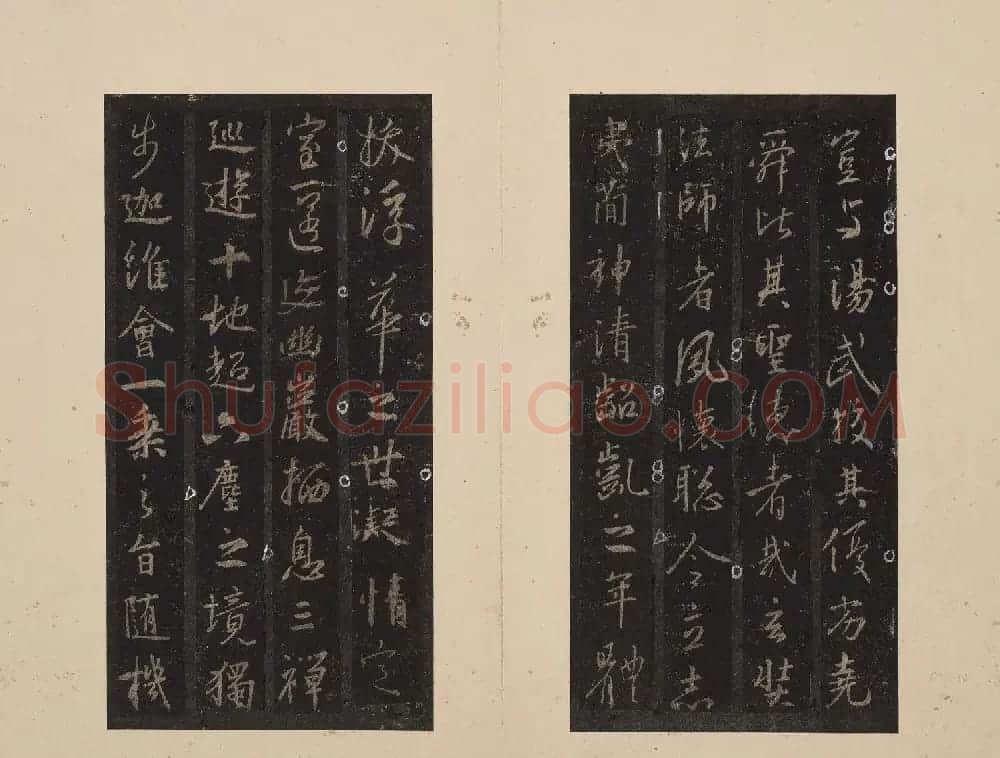 豈与湯武挍其優劣堯
舜比其聖德者哉玄奘
法師者夙懷聡令立志
夷簡神清齠齔之年體
拔浮華之世凝情定
室匿迹幽巖栖息三禪
巡遊十地超六塵之境獨
步迦維會一乘之旨随機
Shufaziliao.COM